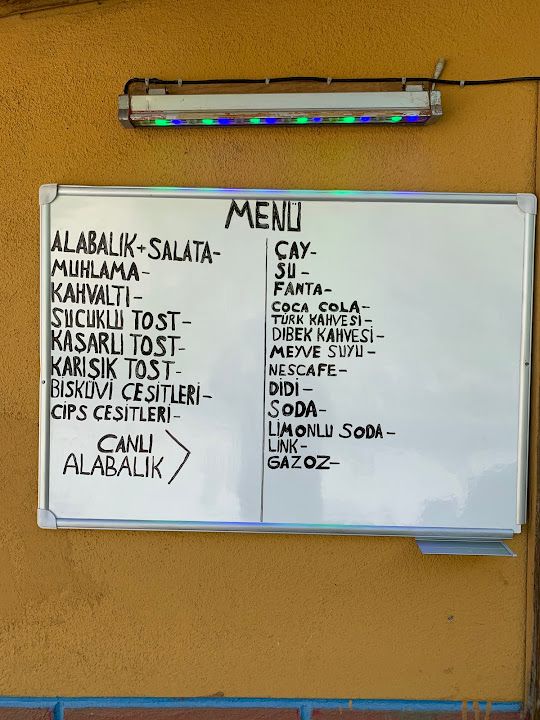 MENÜ
ALABALIK+SALATA-
MUHLAMA-
KAHVALTI-
SUCUKLU TOST-
KAŞARLI TOST-
KARIŞIK TOST-
BISKÜVİ ÇEŞİTLERİ-
CİPS ÇEŞİTLERİ-
CANLI
ALABALIK
ÇAY-
SU-
FANTA-
COCA COLA-
TÜRK KAHVESİ-
DİBEK KAHVESİ-
MEYVE SUYU-
NESCAFE-
DİDİ-
SODA-
LİMONLU SODA-
LINK-
GAZOZ-